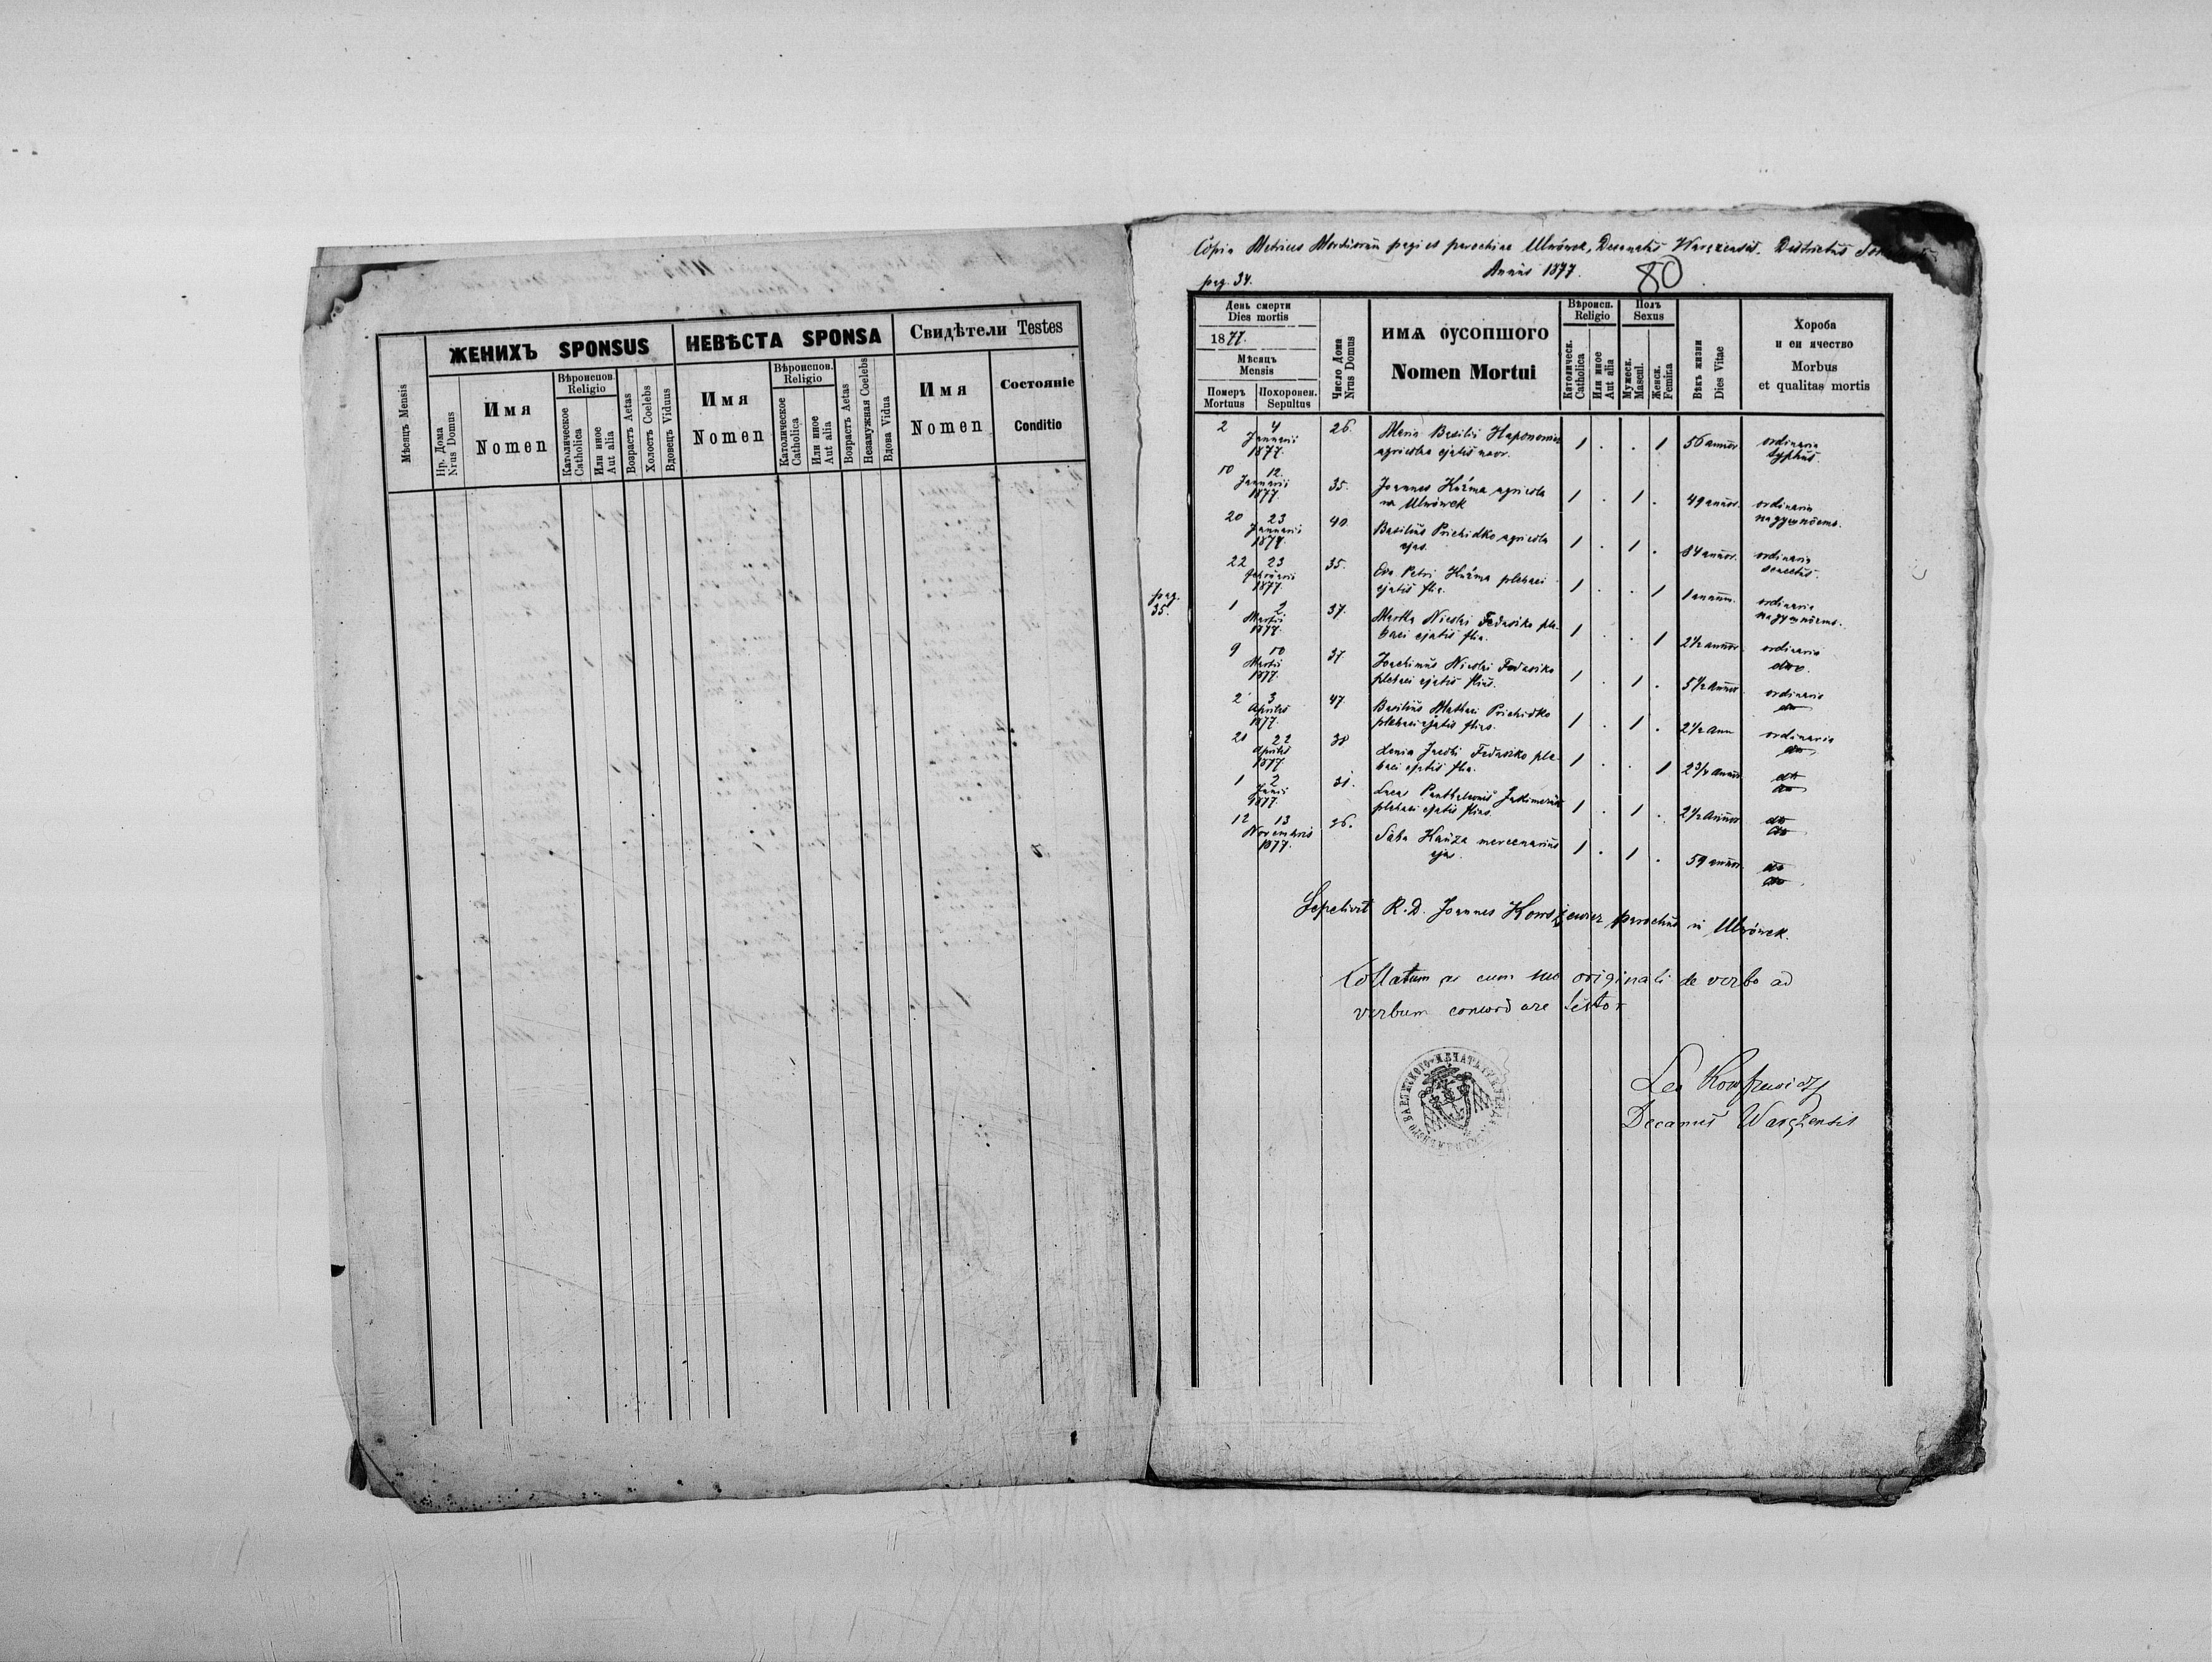 ЖЕНИХЪ SPONSUS
НЕВѢСТА SPONSA
Свидѣтели Testes
Мѣсяцъ Mensis
Нр. Дома
Nrus Domus
Имя
Nomen
Вѣроиспов.
Religio
Католическое
Catholica
Или иное
Aut alia
Возрастъ Aetas
Холостъ Coelebs
Вдовецъ Viduus
Имя
Nomen
Вѣроиспов.
Religio
Католическое
Catholica
Или иное
Aut alia
Возрастъ Aetas
Незамужная Coelebs
Вдова Vidua
Имя
Nomen
Состояніе
Conditio
Copia Metrices Mortuorum pagi et parochiae Ulwówek, Decanatus Warezensis. Districtus
Annus 1877.
80
pag. 34.
День смерти
Dies mortis
1877.
Мѣсяцъ
Mensis
Померъ
Mortuus
Похоронен.
Sepultus
Число Дома
Nrus Domus
ИМѦ ОУСОПШОГО
Nomen Mortui
Вѣроисп.
Religio
Католическ.
Catholica
Или иное
Aut alia
Полъ
Sexus
Мужеск.
Mascul.
Женск.
Femina
Вѣкъ жизни
Dies Vitae
Хороба
и еи ячество
Morbus
et qualitas mortis
2 4 26. Maria Basilii 1 . . 1 56 annor. ordinaria
Januarii agricolae ejatis uxor. typhus.
1877.
10 12. 35. Joannes Kuźma agricola 1 . 1 . 49 annor. ordinaria
Januarii na Ulwówek
1877
20 23 40. Basilius Prichidko agricola 1 . 1 . 84 annor. ordinaria
Januarii ejas. senectus.
1877.
22 23 35. Eva Petri Kuźma plebaei 1 . . 1 1 annum. ordinaria
Februarii ejatis flia.
1877.
pag.
35.
1 2 37. Martha Nicolai Fedasiko ple- 1 . . 1 2½ annor. ordinaria
Martii baei ejatis flia.
1877.
9 10 37 Joachimus Nicolai Fedasiko 1 . 1 . 5½ annor ordinaria
Martii plebaei ejatis flius. dto
1877.
2 3 47. Basilius Mathaei Prichidko 1 . 1 . 2½ ann ordinaria
Aprilis plebaei ejatis flius. dto
1877.
21 22 38 Xenia Jacobi Fedasiko ple- 1 . . 1 annor dto
Aprilis baei ejatis flia. dto
1877
1 2 31. Lucas Panthaleonis 1 . 1 . 2½ annor dto
Junii plebaei ejatis flius. dto
1877.
12 13 26. Saba Kauza mercenarius 1 . 1 . 59 annor. dto
Novembris ejas. dto
1877.
Sepelivit R. D. Joannes parochus in Ulwówek.
Collatum et cum suo originali de verbo ad
verbum concordare testor
Leo
Decanus Warężensis